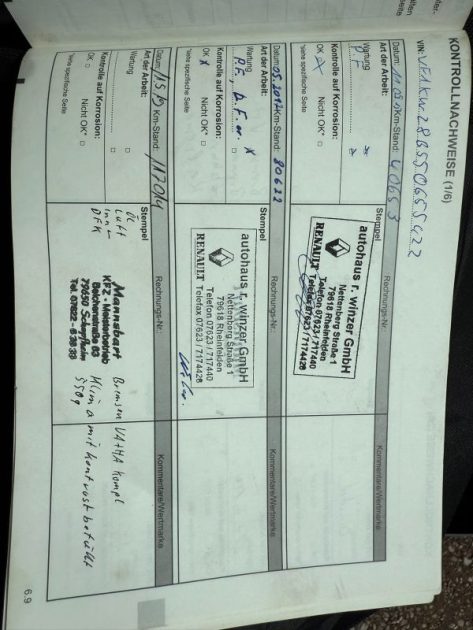 KONTROLLNACHWEISE (1/6)
VIN:
Datum: Km-Stand: 40653
Art der Arbeit:
Wartung
PF
Kontrolle auf Korrosion:
OK Nicht OK*
*siehe spezifische Seite
Stempel
autohaus r. winzer GmbH
Nettenberg Straße 1
79618 Rheinfelden
Telefon 07623 / 717440
RENAULT Telefax 07623 / 7174428
Rechnungs-Nr.:
Kommentare/Wertmarke
Datum: Km-Stand: 80622
Art der Arbeit:
Wartung
Kontrolle auf Korrosion:
OK Nicht OK*
*siehe spezifische Seite
Stempel
autohaus r. winzer GmbH
Nettenberg Straße 1
79618 Rheinfelden
Telefon 07623 / 717440
RENAULT Telefax 07623 / 7174428
Rechnungs-Nr.:
Kommentare/Wertmarke
Datum: Km-Stand:
Art der Arbeit:
Wartung
Kontrolle auf Korrosion:
OK Nicht OK*
*siehe spezifische Seite
Stempel
Öl
Luft
Inn
Mannshart
KFZ - Meisterbetrieb
Belchenstraße 93
79650 Schopfheim
Rechnungs-Nr.:
Bremsen VA+HA kompl
Klima mit Kontrast befüllt
550g
Kommentare/Wertmarke
6.9